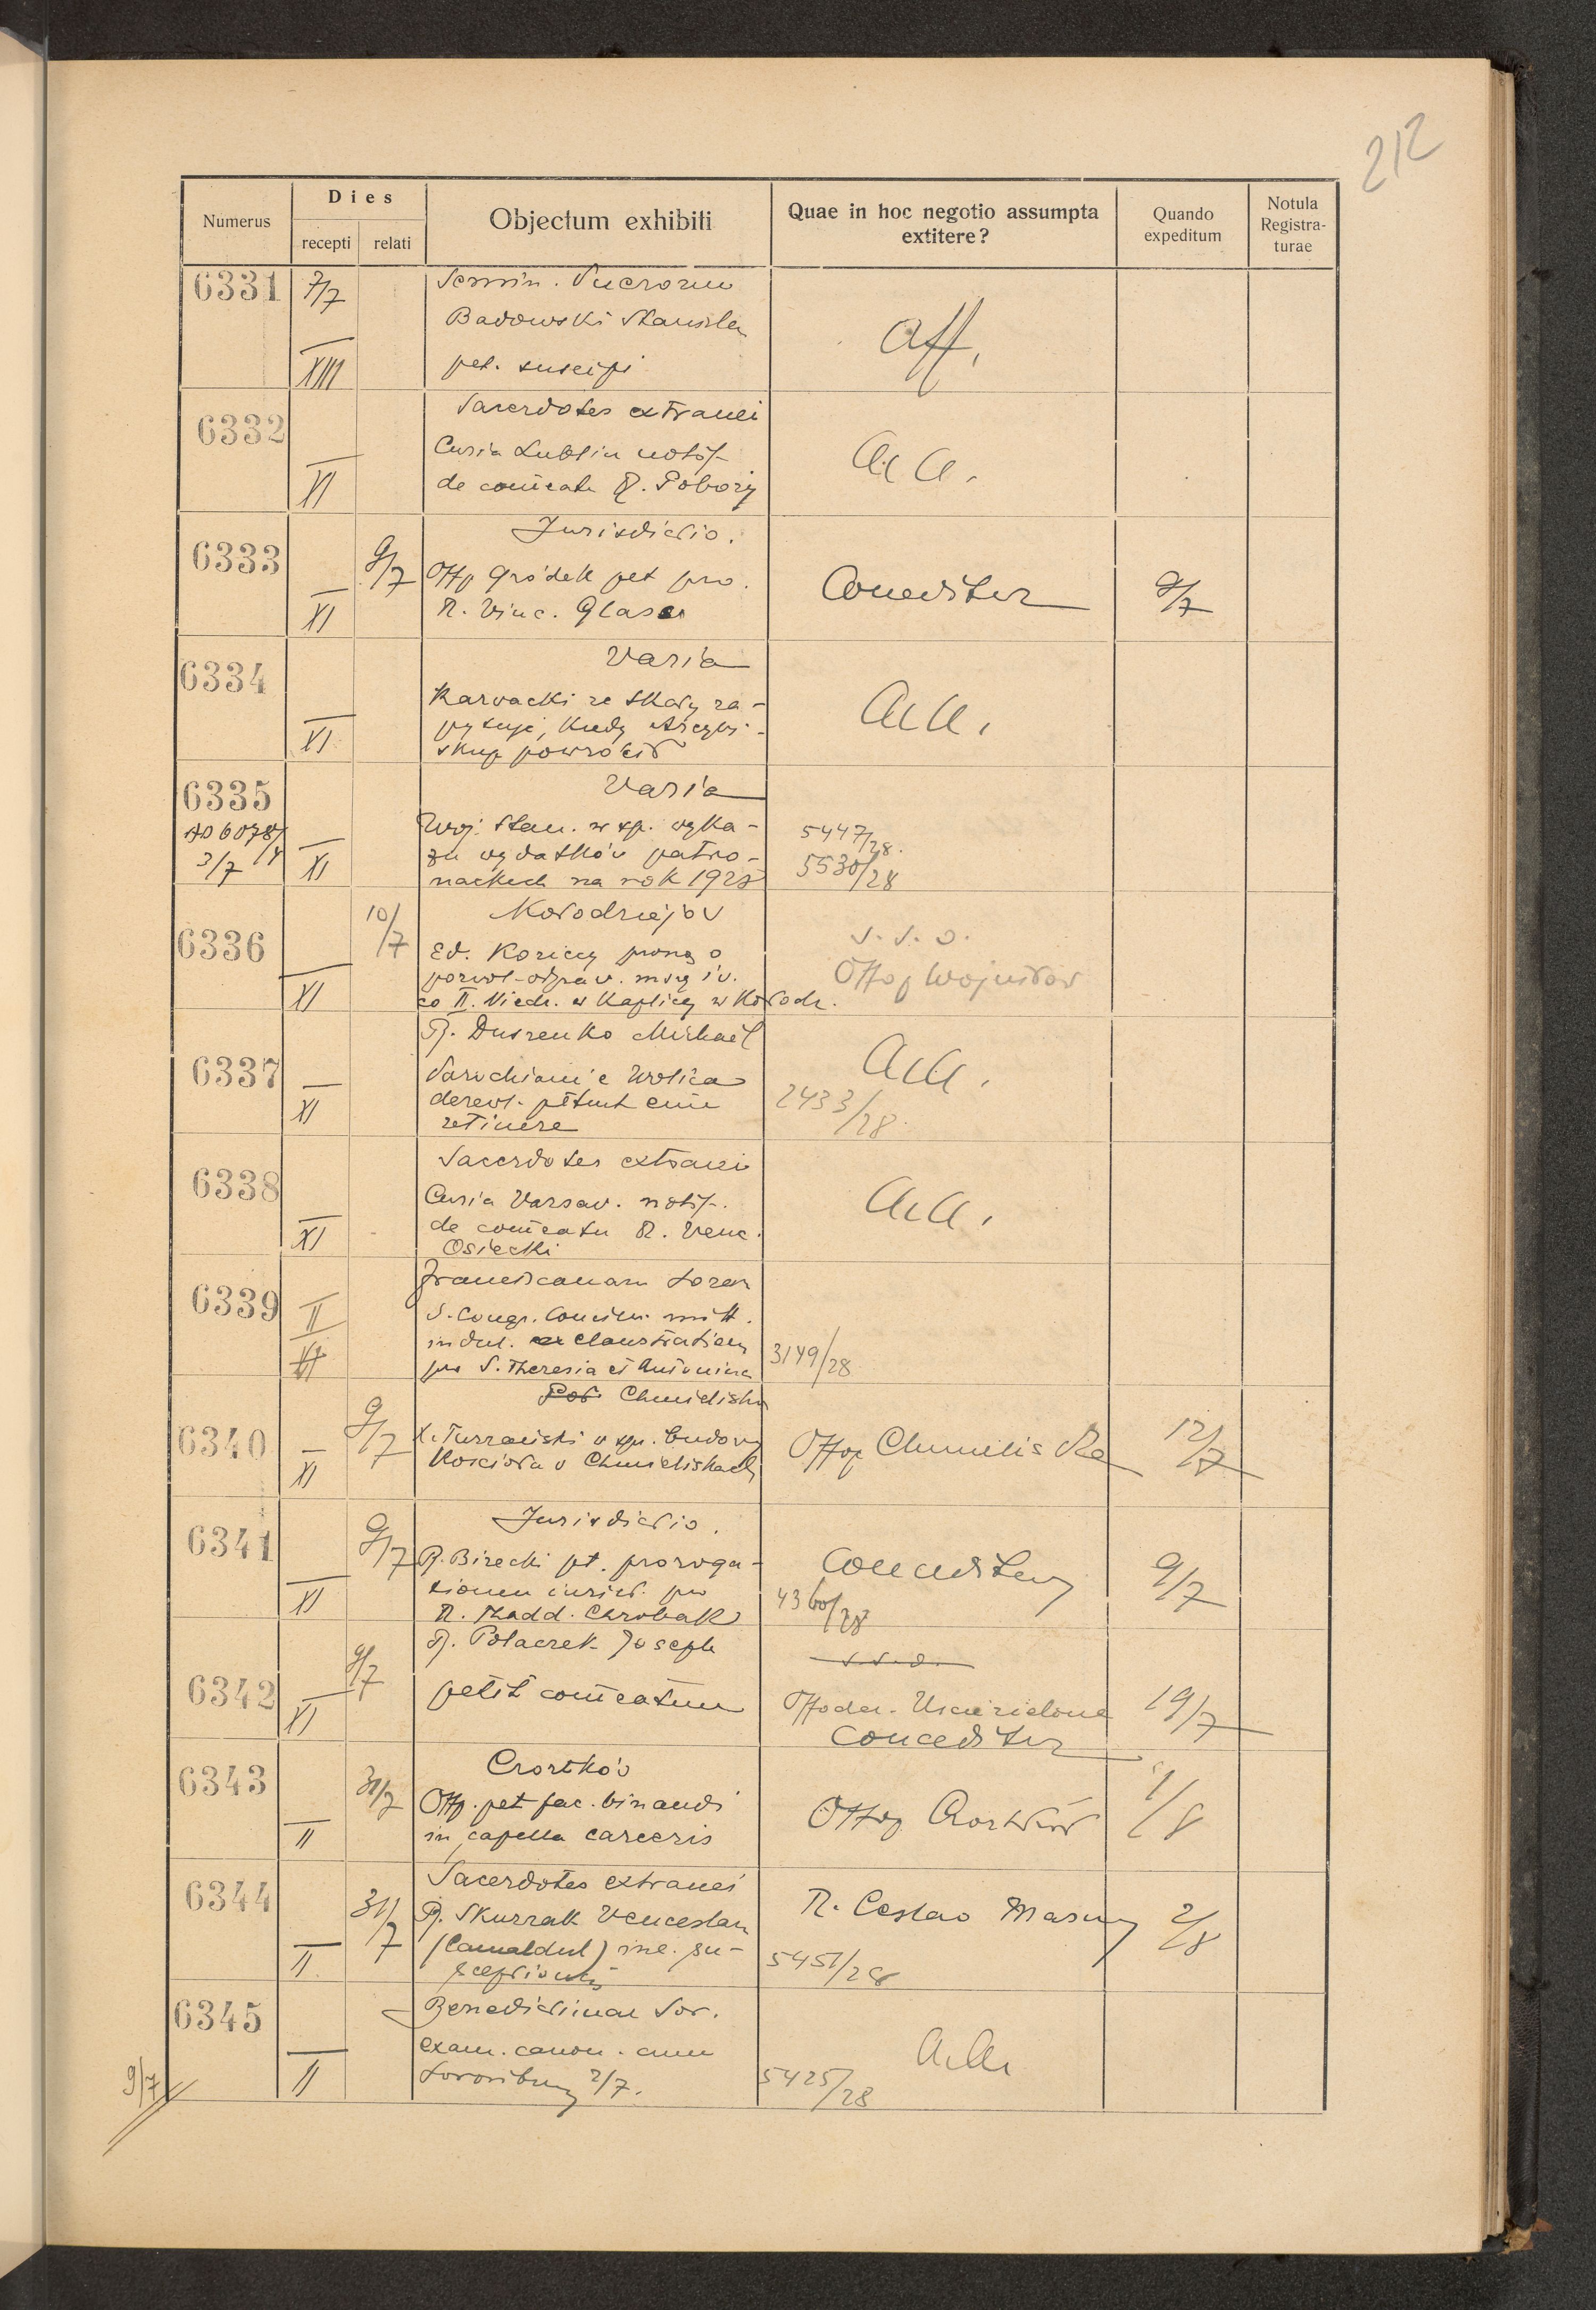 212
Numerus
Dies
recepti relati
Objectum exhibiti
Quae in hoc negotio assumpta
extitere?
Quando
expeditum
Notula
Registra-
turae
6331 7/7
XIII
Semin. Puerorum
Badowski Stanislau
pet. suscipi
aff.
6332
XI
Sacerdotes extranei
Curia Lublin notif.
de comeatu R. Pobozy
a.a.
6333 9/7
XI
Jurisdictio.
Offp Gródek pet pro.
R. Vinc. Glaser
Conceditur 9/7
6334
XI
Varia
Karwacki ze Skały za-
pytuje, kiedy Arcybi-
skup powrócił
a.a.
6335
AD 6078/
3/7
XI
Varia
Woj. Stan. w sp. wyka-
zu wydatków patro-
nackich na rok 1928
5447/28.
5530/28
6336 10/7
XI
Kołodziejów
Ed. Koziccy proszą o
pozwol. odpraw. mszy św.
co II. Niedz. w Kaplicy w Kołodz.
s. s. o.
Offop Wojniłów
6337
XI
R. Duszenko Michael
Parochiani e Wolica
derewl. petunt eum
retinere
a.a.
2433/28.
6338
XI
Sacerdotes extranei
Curia Varsav. notif.
de comeatu R. Venc.
Osiecki
a.a.
6339
II
XI
Franciscanarum Soror.
S. Congr. Concilii mitt.
indul. ex claustrationis
pro S. Theresia et Antonina
3149/28
6340 9/7
XI
Chmieliska
X. Turzański w sp. budowy
Kościoła w Chmieliskach
Offop Chmieliska 12/7
6341 9/7
XI
Jurisdictio.
R. Birecki pt. proroga-
tionem iurisd. pro
R. Thadd. Chrobak
conceditur 9/7
4360/28
6342 9/7
XI
R. Polaczek Joseph
petit comeatum
s.s.o.
Offodec. Uscieczielone
conceditur 19/7
6343 31/7
II
Czortków
Offp. pet fac. binandi
in capella carceris
Offop Czortków 1/8
6344 31/7
II
Sacerdotes extranei
R. Skurzak Venceslau
(Camaldul) ine. su-
sceptionis
R. Ceslao Masny 2/8
5451/28
6345
II
Benedictinae Sor.
exam. canon. cum
Sororibus 2/7.
a.a.
5425/28
9/7